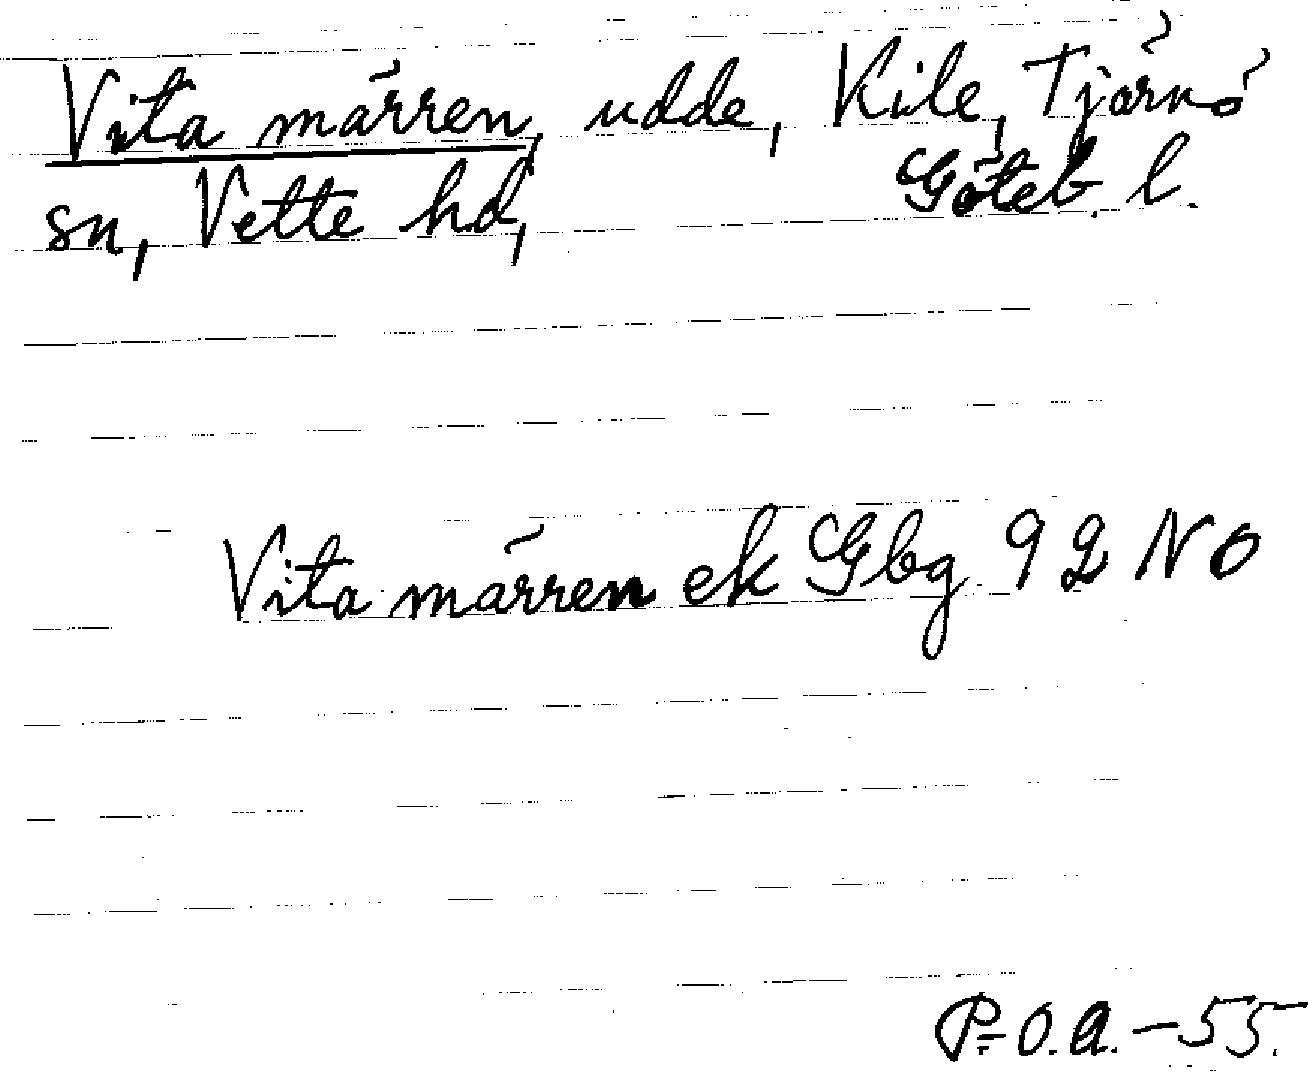 Vita märren, udde, Kile, Tjärnö
sn, Vette hd, Göteb. l.
Vita märren ek Gbg 92 NO
P.O.A. - 55.